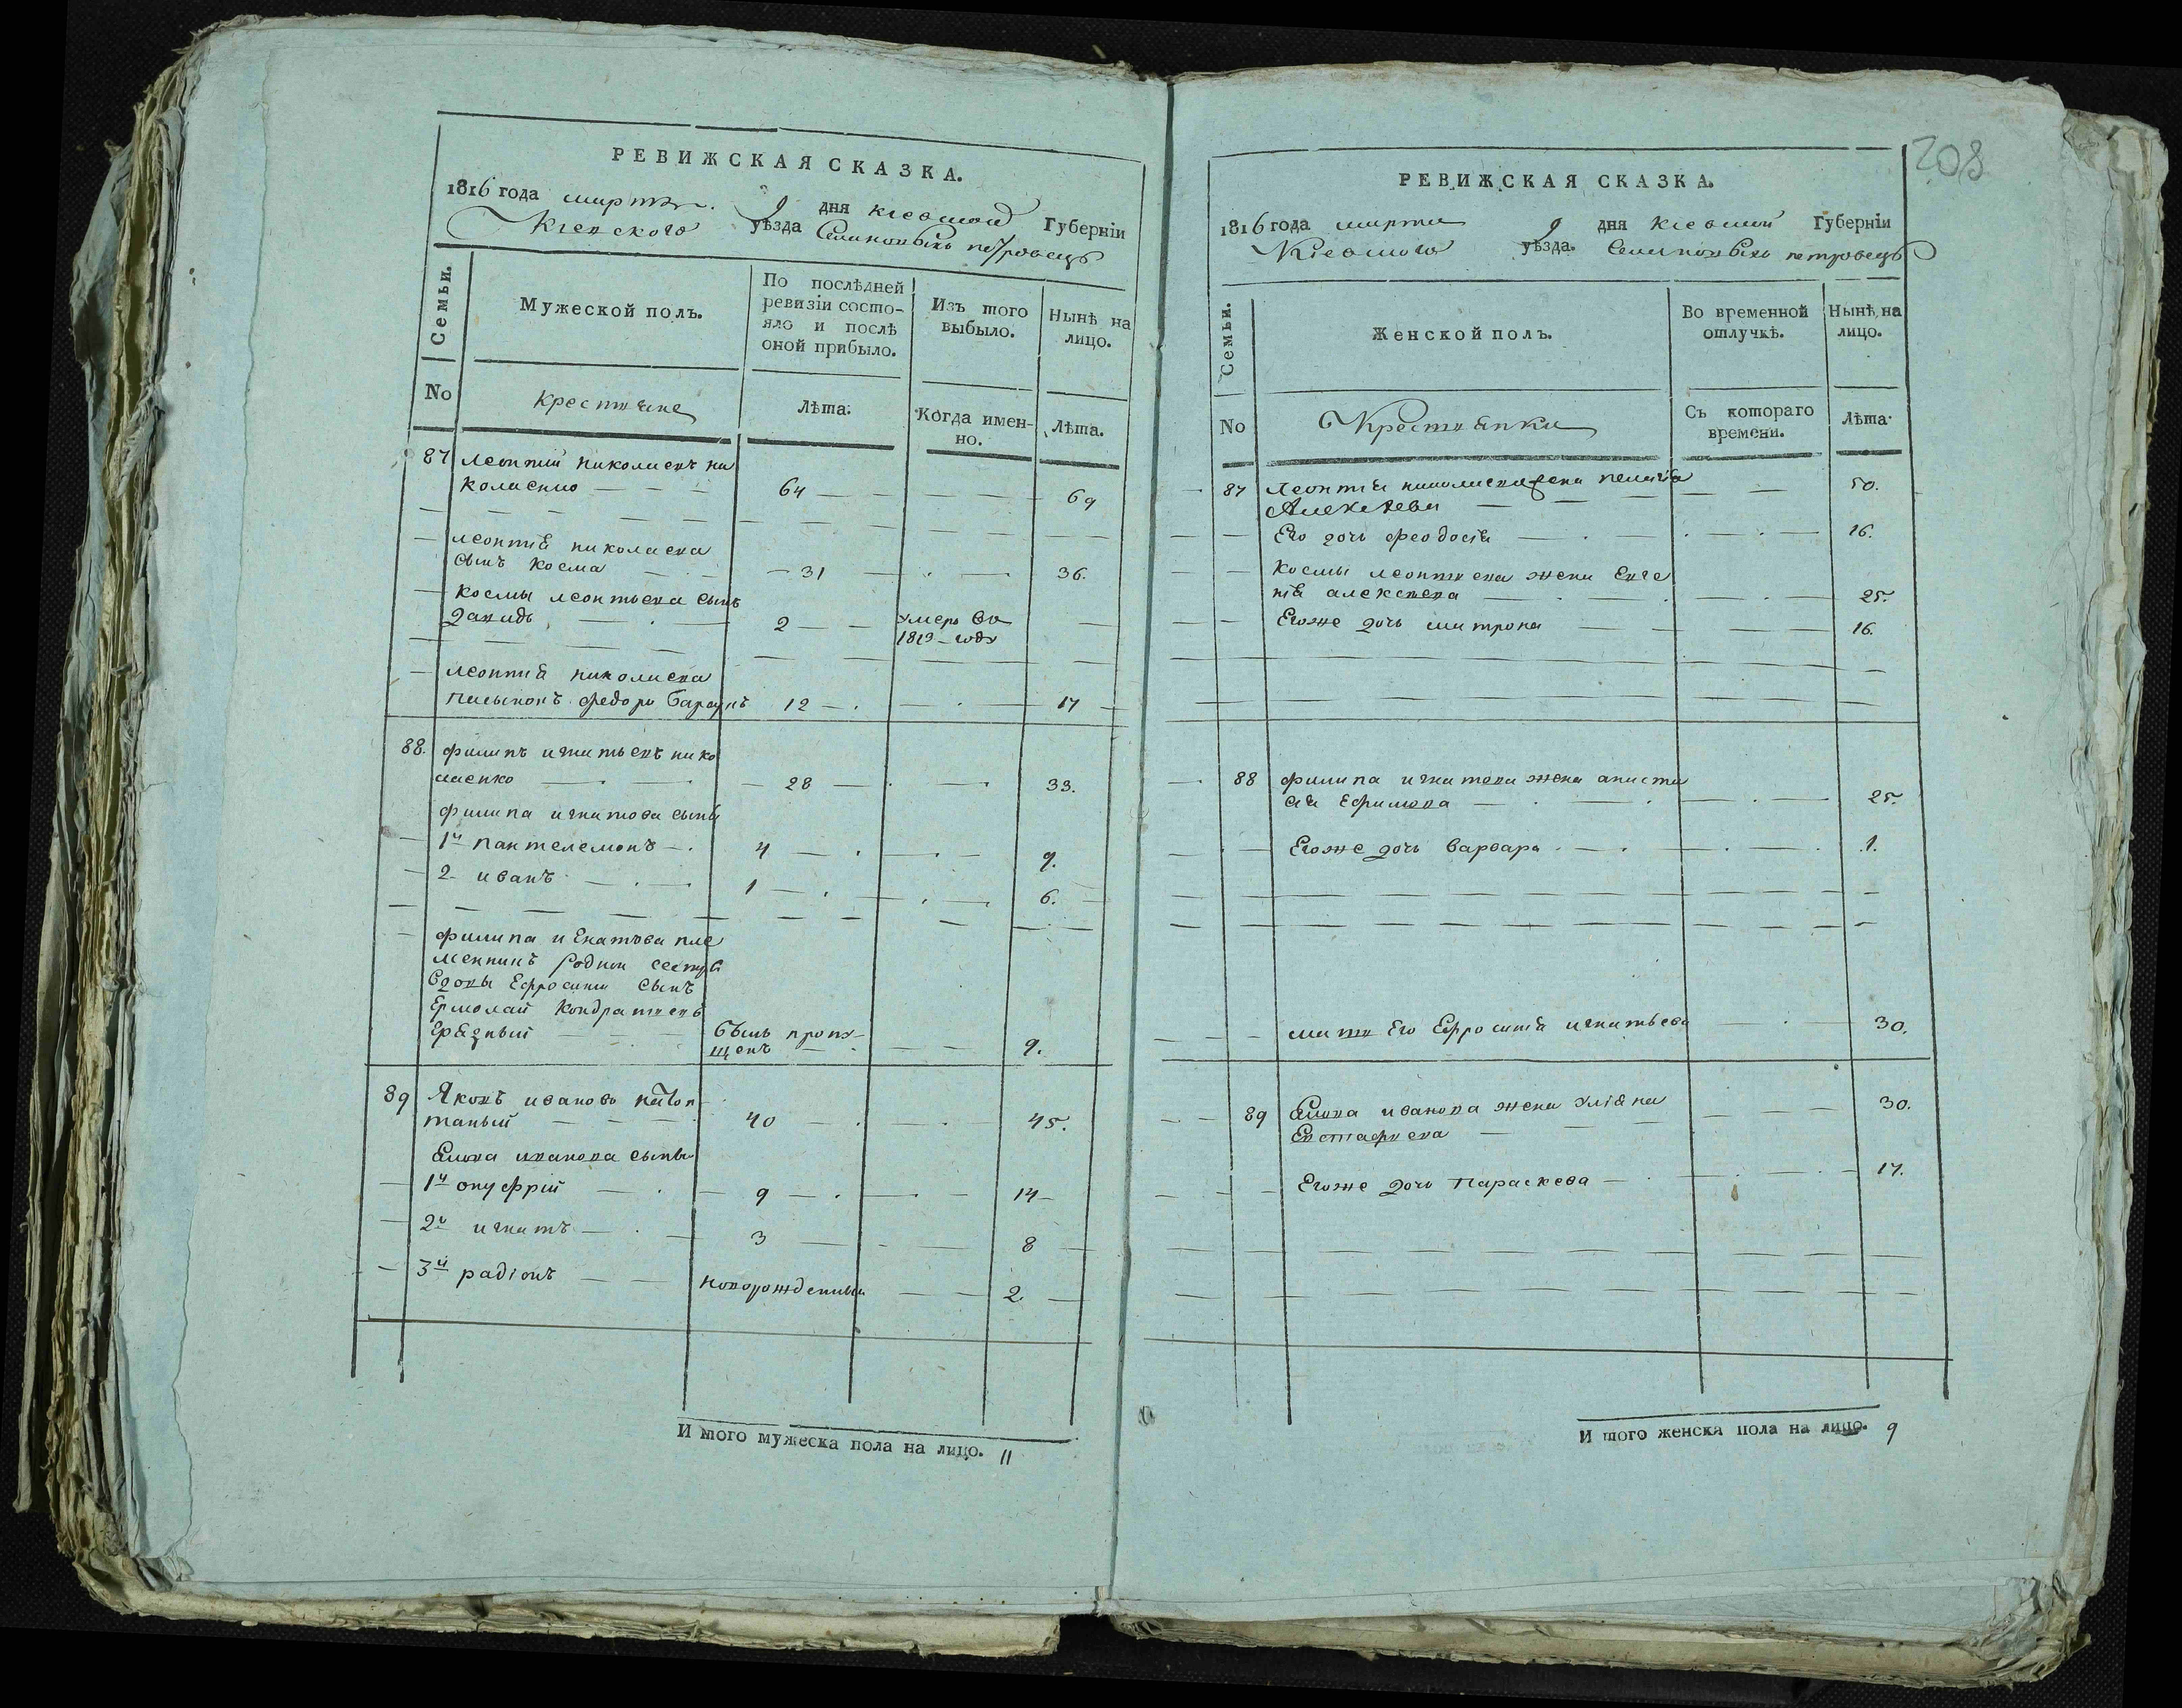 РЕВИЖСКАЯ СКАЗКА.
1816 года марта 9 дня Кіевской Губерніи
Кіевского уѣзда Селиновыхъ петровецъ
Семьи.
Мужеской полъ.
По послѣдней ревизіи состо-
яло и послѣ
оной прибыло.
Изъ того
выбыло.
Нынѣ на
лицо.
No
Крестяне
Лѣта.
Когда имен-
но.
Лѣта.
87 Леонтий николаевъ ни
колаенко 64 69
леонтія николаева
сынъ Косма 31 36.
Космы леонтьева сынъ
давидъ 2 умеръ во
1813 году
леонтия николаева
пасынокъ федоръ 12 17
88. филипъ игнатьевъ нико
лаенко 28 33.
филипа игнатова сыны
1й пантелемонъ 4 9.
2 иванъ 1 6.
филипа игнатова пле
менникъ родной сестры
вдовы Ефросини сынъ
Ермолай Кондратьевъ
былъ пропу-
щенъ 9.
89 Яковъ ивановъ
40 45.
Якова иванова сыны
1й онуфрій 9 14
2й игнатъ 3 8
3й радіонъ новорожденный 2
И того мужеска пола на лицо. 11
208
РЕВИЖСКАЯ СКАЗКА.
1816 года марта 9 дня Кіевской Губерніи
Кіевского уѣзда. Селиновыхъ петровецъ
Семьи.
Женской полъ.
Во временной
отлучкѣ.
Нынѣ на
лицо.
No
Крестьянки
Съ котораго
времени.
Лѣта.
87 Леонтія николаева жена пелагія
Алексѣева 50.
Его дочь феодосія 16.
Космы леонтьева жена Евге
нія алексеева 25.
Егоже дочь матрона 16.
88 филипа игнатева жена анаста
сія Ефимова 25.
Егоже дочь варвара 1.
мать Его Ефросинія игнатьева 30.
89 Якова иванова жена Уліяна 30.
Евстафиева
Егоже дочь Параскева 17.
И того женска пола на лицо. 9